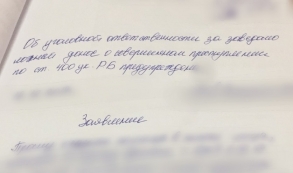 Об уголовной ответственности за заведомо
ложный донос о совершенном преступлении
по ст 400 ук РБ предупрежден
Заявление